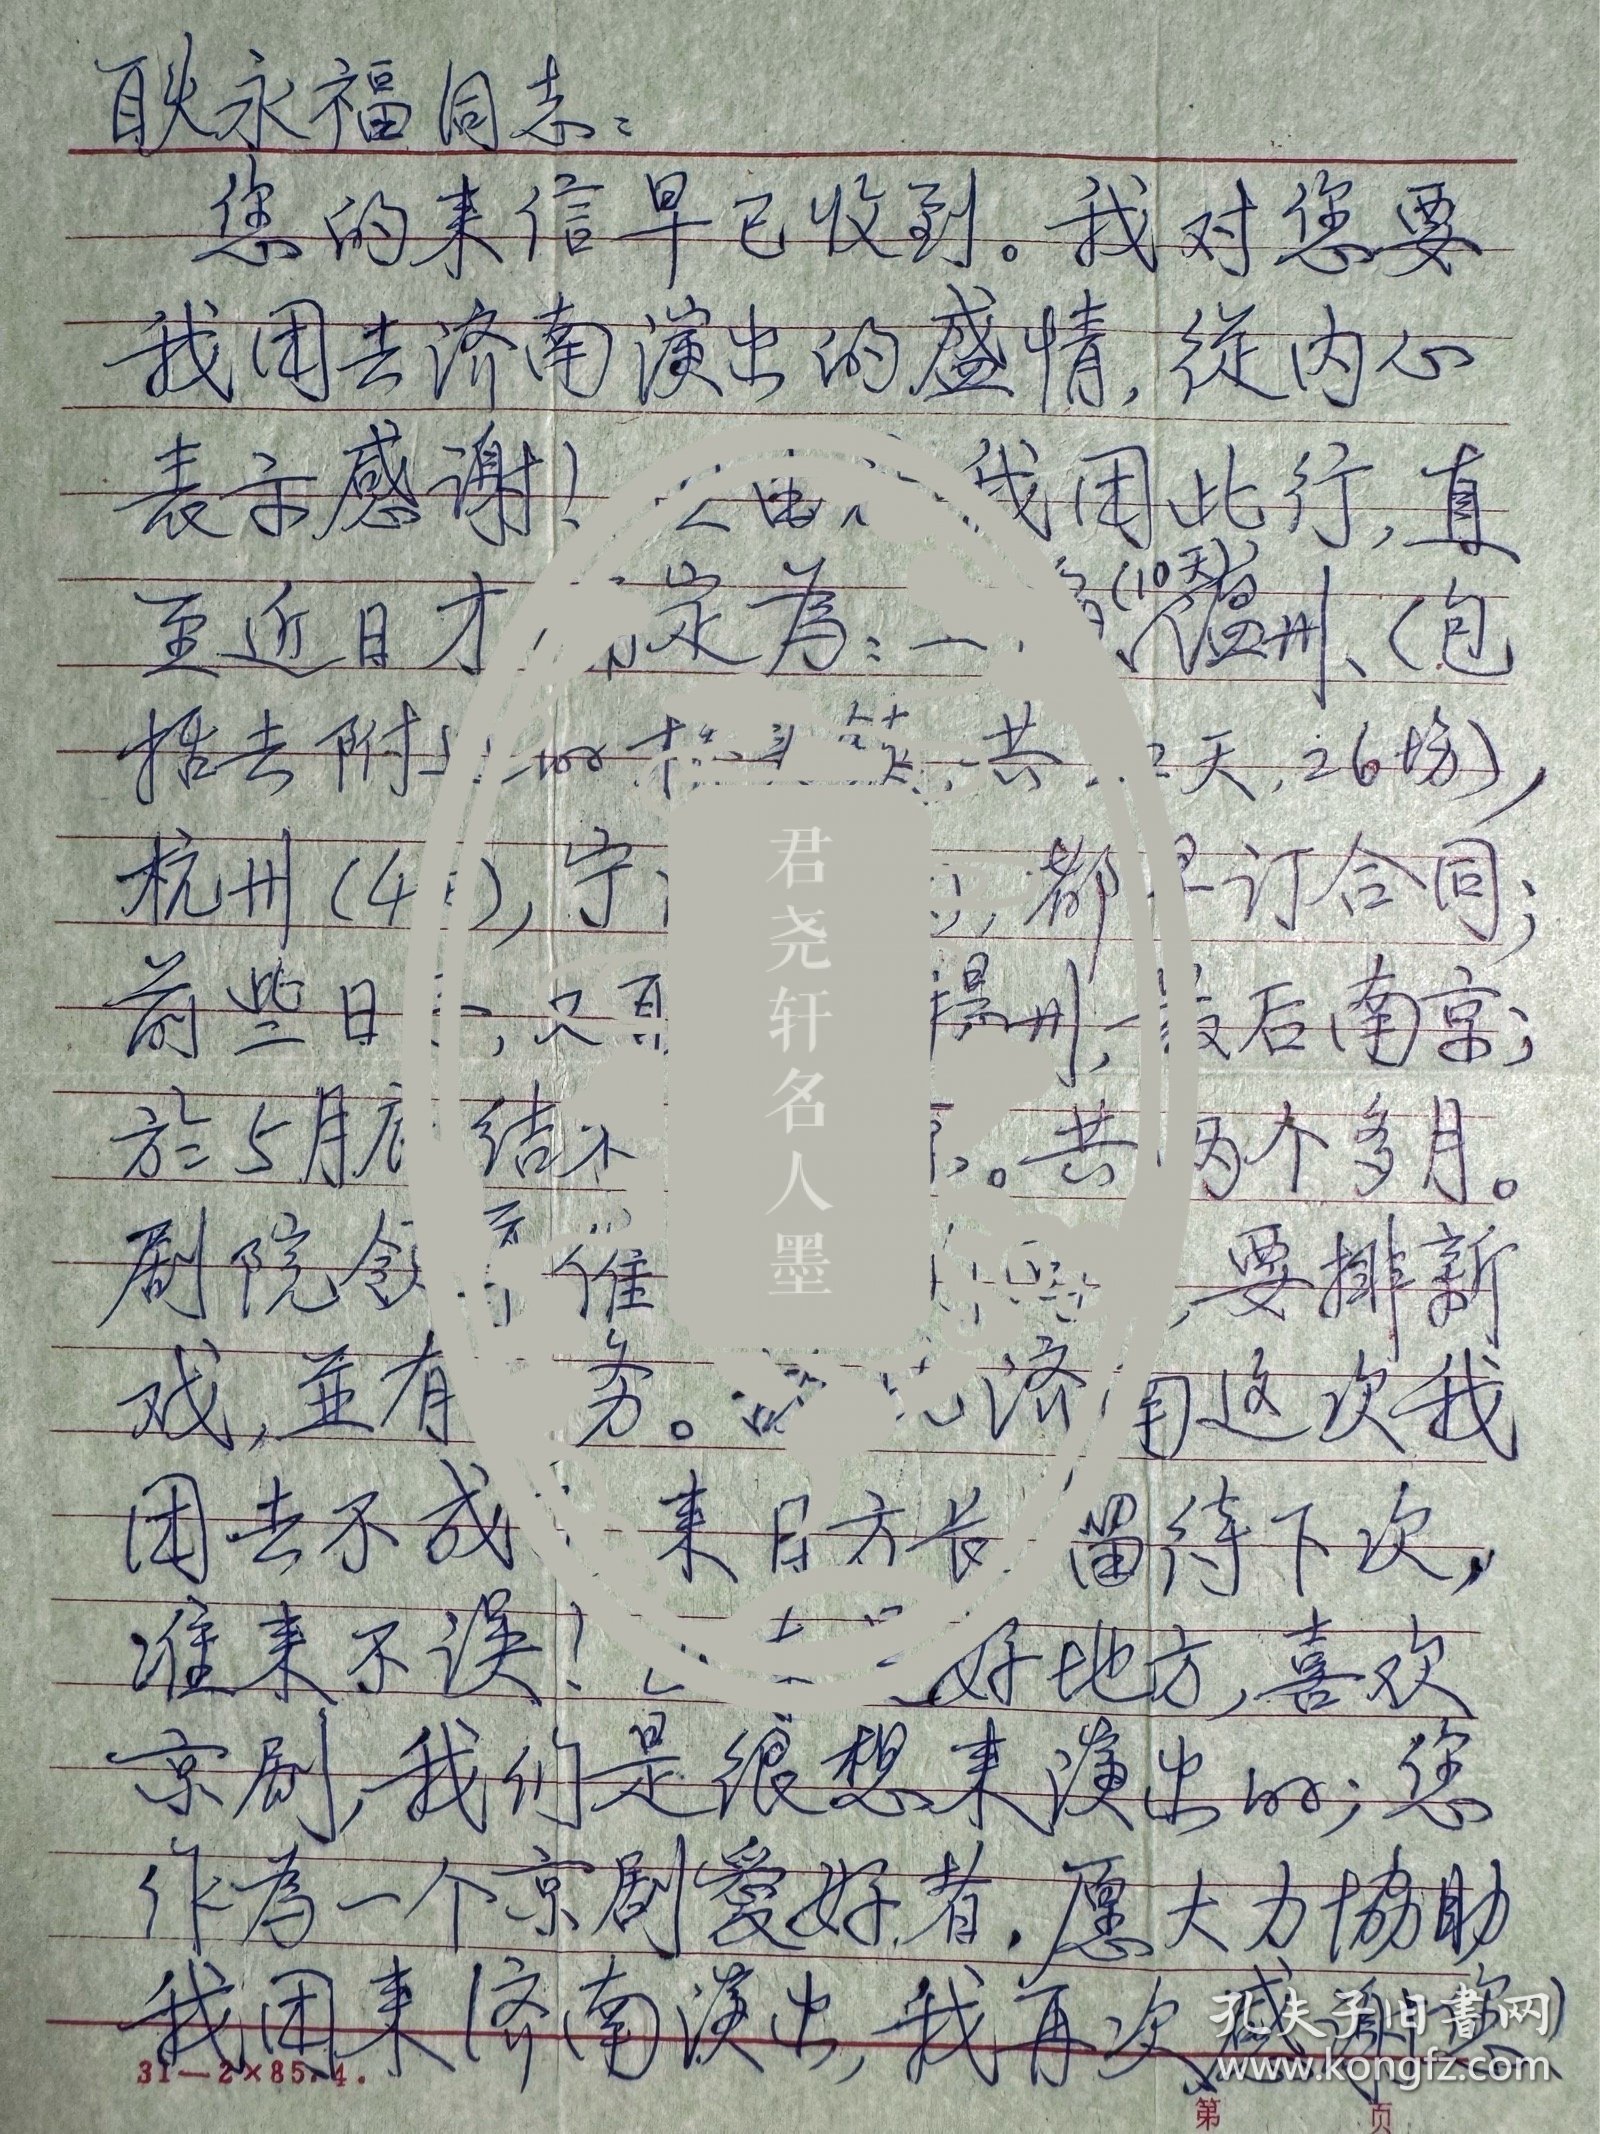 耿永福同志：
您的来信早已收到。我对您要
我团去济南演出的盛情，從内心
表示感谢！我团此行，直
至近日才定為：一(10天)温州、（包
括去附共天，26场），
杭州（4），宁都订合同；
前些日，又州，最后南京；
於5月底结。共两个多月。
剧院领导，要排新
戏，並有务。济南这次我
团去不成，来日方长，留待下次，
准来不误！好地方，喜欢
京剧，我们是很想来演出的；您
作為一个京剧愛好者，愿大力協助
我团来濟南演出，我再次感谢您！
31—2×85.4.
第 页
君尧轩名人墨
孔夫子旧書网
www.kongfz.com